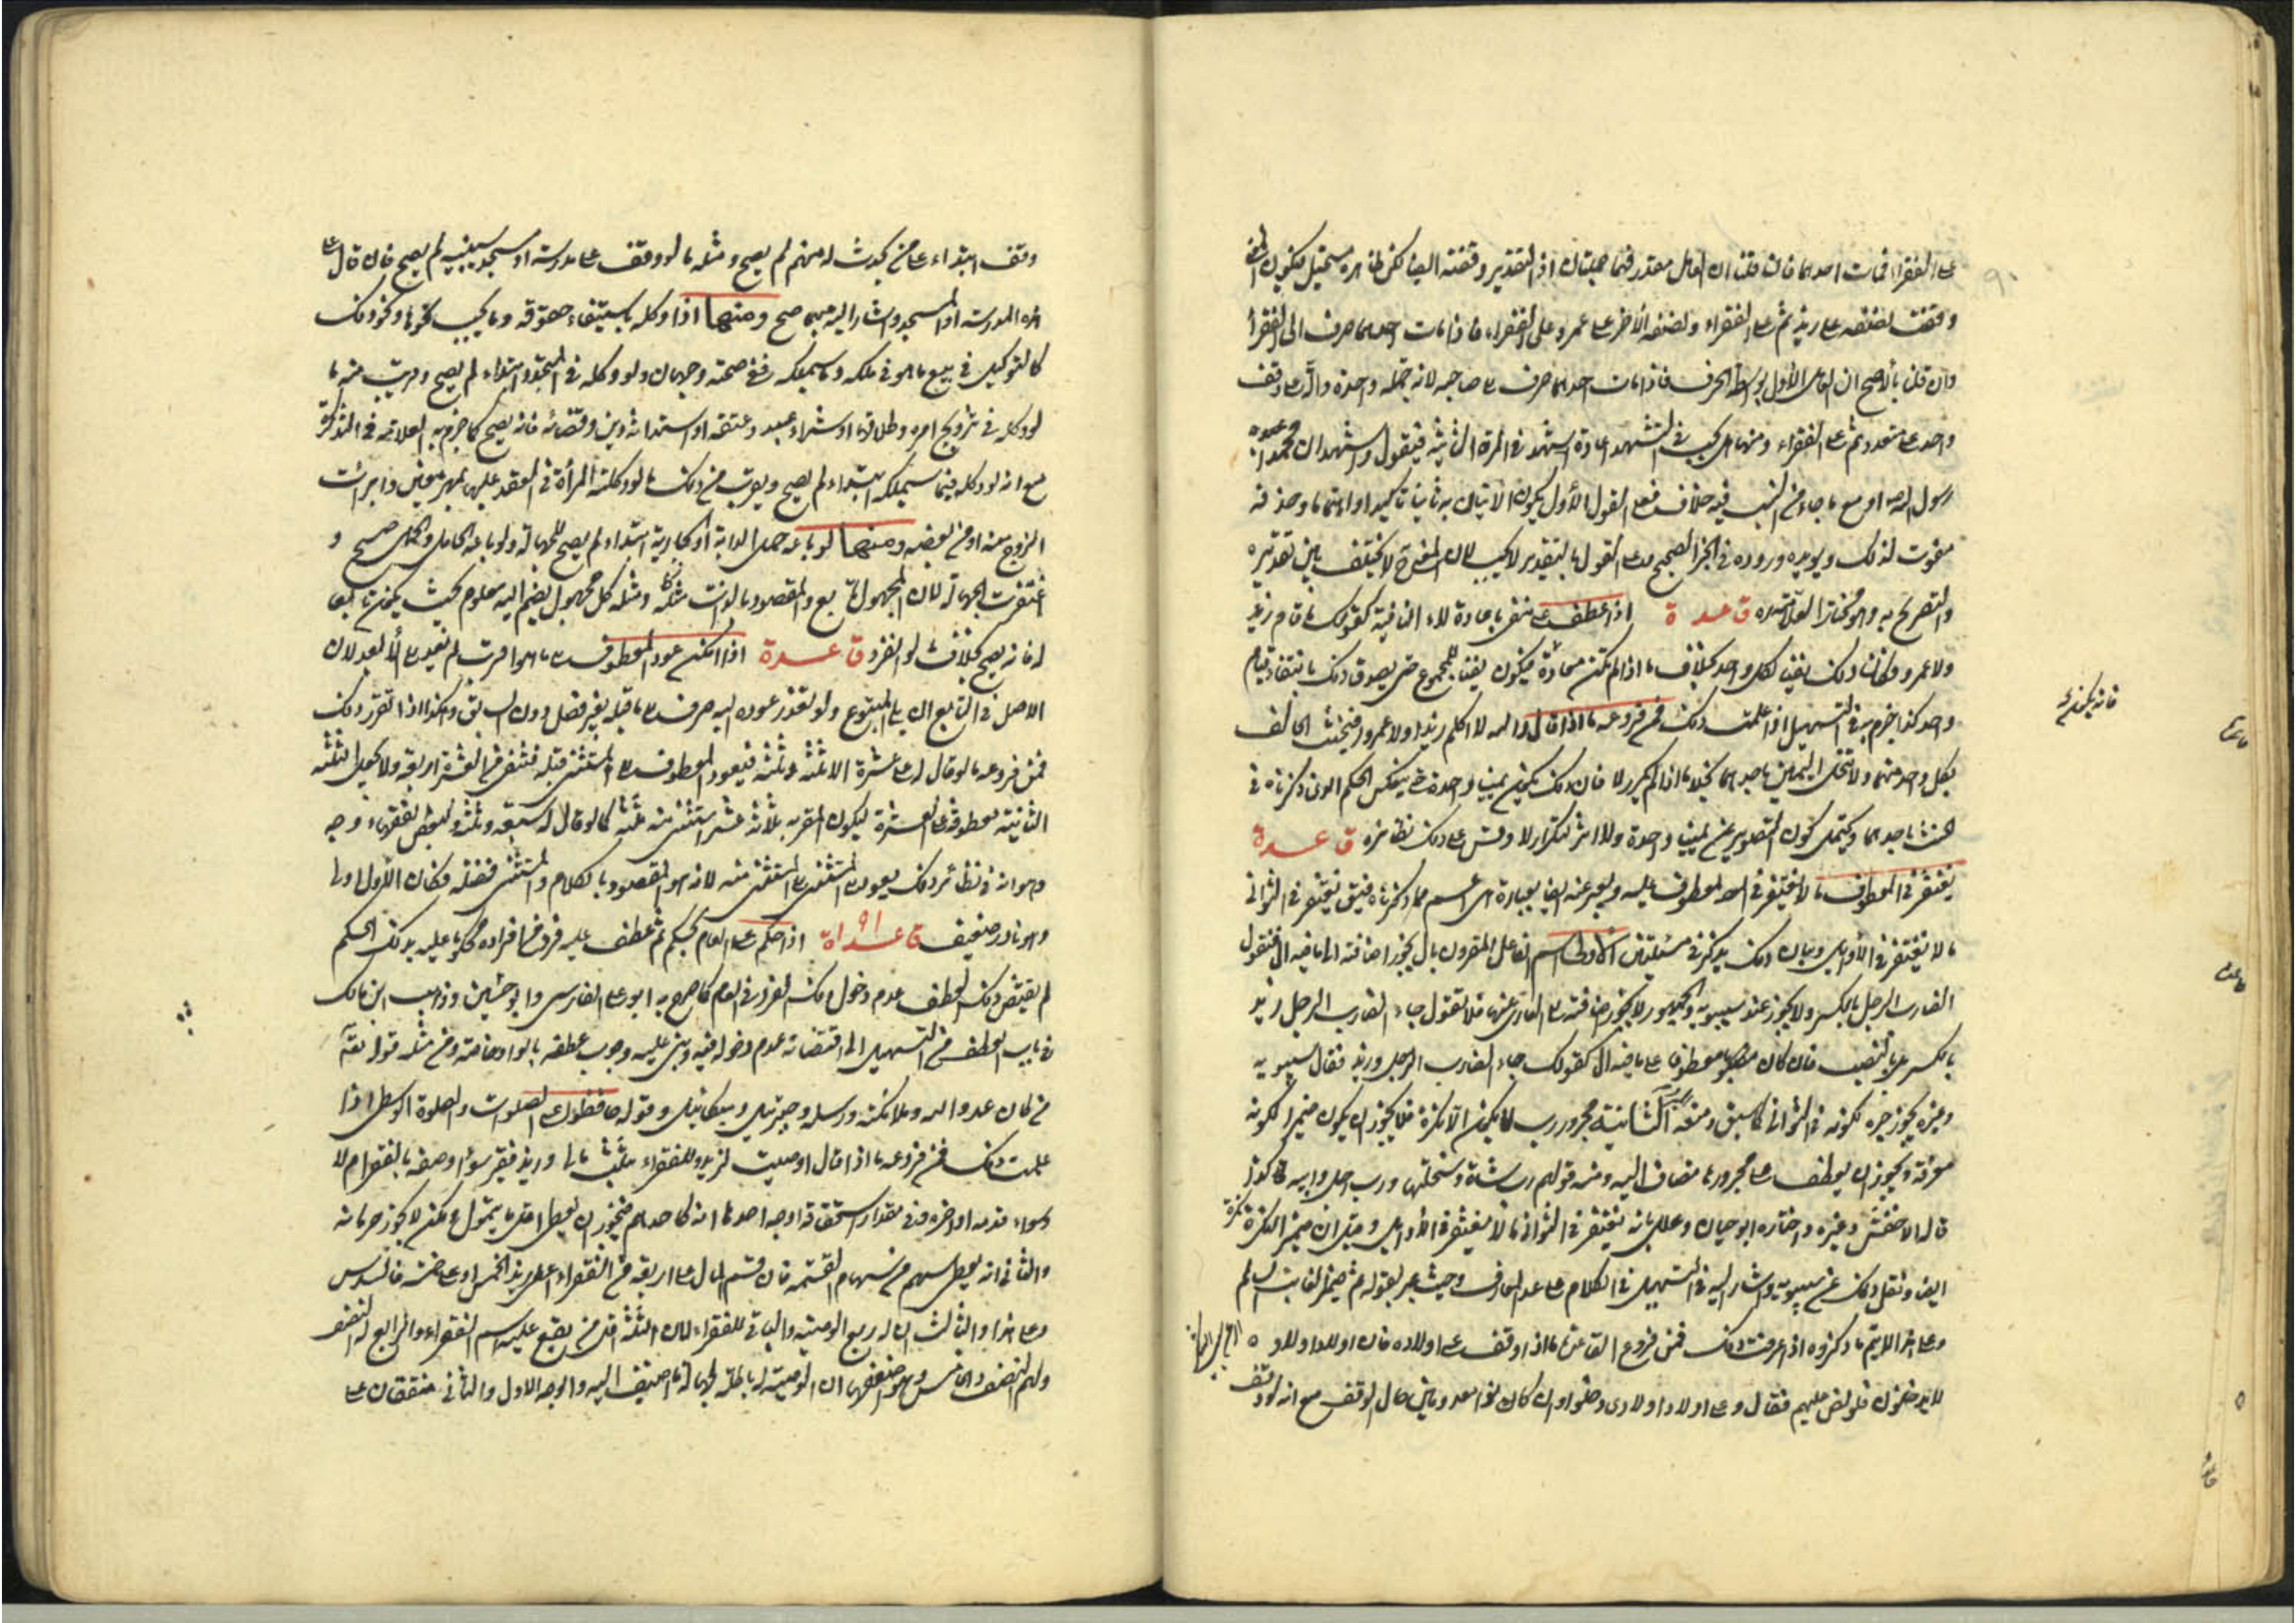 على الفقراء فمات احدهما فان قلنا ان العامل مقدر فهما جملتان اذ التقدير وقفته ايضا لكن ظاهره مستحيل فيكون
وقفت نصفه على زيد ثم على الفقراء ونصفه الآخر على عمرو وعلى الفقراء فاذا مات احدهما صرف الى الفقراء
وان قلنا بالاصح ان العامل الأول بواسطة الحرف فاذا مات احدهما صرف على صاحبه لانه جملة واحدة والدار وقف
واحد على متعدد ثم على الفقراء ومنها هل يجب في التشهد اعادة اشهد في المرة الثانية فيقول واشهد ان محمدا عبده
رسول الله او مع ما جاء من النسب فيه خلاف فعلى القول الأول يكون الاتيان به ثانيا تاكيدا وحذفه
مفوت لذلك ويؤيده وروده في الخبر الصحيح وعلى القول بالتقدير لا يجب لان لا يختلف بين تقديره
والتصريح به وهو مختار العلامة قاعدة اذا عطف على منفي باعادة لا النافية كقولك ما قام زيد
ولا عمرو وكان ذلك نفيا لكل واحد بخلاف ما اذا لم تكن معادة فيكون نفيا للمجموع حتى يصدق ذلك بانتفاء قيام
واحد كذا جزم به في التسهيل اذا علمت ذلك فمن فروعه ما اذا قال والله لا اكلم زيدا ولا عمروا فيحنث الحالف
بكل واحد منهما ولا تنحل اليمين باحدهما بخلاف ما اذا لم يكرر لا فان ذلك يكون يمينا واحدة حتى ينعكس الحكم الذي ذكرناه في
الحنث باحدهما ويحتمل كون الصورتين يمينا واحدة ولا اثر لتكرار لا وقس على ذلك نظائره قاعدة
يغتفر في المعطوف ما لا يغتفر في المعطوف عليه ويعبر عنه ايضا بعبارة هي اعم مما ذكرناه فيقال يغتفر في الثواني
ما لا يغتفر في الأوايل وبيان ذلك يذكر في مسئلتين الاولى اسم الفاعل المقرون بال يجوز اضافته الى ما فيه ال فتقول
الضارب الرجل بالكسر ولا يجوز عند سيبويه والجمهور لا يجوز اضافته الى العاري عنها فلا تقول جاء الضارب الرجل زيد
بالكسر بل بالنصب فان كان معطوفا على ما فيه ال كقولك جاء الضارب الرجل وزيد فقال سيبويه
وغيره يجوز جره لكونه في الثواني كما سبق ومنعه المبرد الثانية مجرور رب لا يكون الا نكرة فلا يجوز ان يكون ضميرا لكونه
معرفة ويجوز ان يعطف على مجرورها مضاف اليه ومنه قولهم رب شاة وسخلتها ورب رجل وابيه هكذا
قاله الاخفش وغيره واختاره ابو حيان وعلله بانه يغتفر في الثواني ما لا يغتفر في الأوايل وقيل ان ضمير النكرة نكرة
ايضا ونقل ذلك عن سيبويه واشار اليه في التسهيل في الكلام على عد المعارف وحيث عبر بقوله ثم ضمير الغائب السالم
وعلى هذا لا يتم ما ذكروه اذا عرفت ذلك فمن فروع القاعدة ما اذا وقف على اولاده فان اولاد اولاده
لا يدخلون فلو نص عليهم فقال وعلى اولاد اولادي دخلوا وان كانوا معدومين حال الوقف مع انه لو وقف
وقف ابتداء على من يحدث له منهم لم يصح ومثله ما لو وقف على مدرسة او مسجد سيبنيه لم يصح فان قال على
هذه المدرسة او المسجد واشار اليه منهما صح ومنها اذا وكله باستيفاء حقوقه وما يجب نحوها ونحو ذلك
كالتوكيل في بيع ما هو في ملكه وما سيملكه ففي صحته وجهان ولو وكله في المتجدد ابتداء لم يصح وقريب منه ما
لو وكله في تزويج امرأة وطلاقها او شراء عبد وعتقه او استدانة دين وقضائه فانه يصح كما جزم به العلامة في التذكرة
مع انه لو وكله فيما سيملكه ابتداء لم يصح ويقرب من ذلك ما لو وكلته المرأة في العقد عليها بمهر معين وابرأت
الزوج منه او من بعضه ومنها لو باعه حمل الدابة او الجارية ابتداء لم يصح للجهالة ولو باعه الحامل والحمل صح و
اغتفرت الجهالة لان المجهول تابع والمقصود بالذات مثله ومثله كل مجهول يضم اليه معلوم بحيث يكون تابعا
له فانه يصح بخلاف ما لو انفرد قاعدة اذا امكن عود المعطوف على ما هو اقرب لم يعد على الأبعد لان
الاصل في التابع ان يلي المتبوع ولو تعذر عوده اليه صرف على ما قبله بغير فصل دون السابق وهكذا اذا تقرر ذلك
فمن فروعه ما لو قال له على عشرة الا ثلثة وثلثة فيعود المعطوف على المستثنى قبله فتنفى من العشرة اربعة ولا تحمل الثلثة
الثانية معطوفة على العشرة ليكون المقر به ثلاثة عشر استثنى منه ثلثة كما لو قال له سبعة وثلثة ولبعض الفقهاء وجه
وهو انه في نظائر ذلك يعود المستثنى على المستثنى منه لانه هو المقصود بالكلام والمستثنى فضلة فكان الأول اولى
وهو نادر ضعيف قاعدة اذا حكم على العام بحكم ثم عطف عليه فرد من افراده محكوما عليه بذلك الحكم
لم يقتض ذلك العطف عدم دخول ذلك الفرد في العام كما صرح به ابو علي الفارسي وابن جني وذهب ابن مالك
في باب العطف من التسهيل الى اقتضائه عدم دخوله فيه وبنى عليه وجوب عطفه بالواو خاصة ومن مثله قوله تعالى
من كان عدوا لله وملائكته ورسله وجبرئيل وميكائيل وقوله حافظوا على الصلوات والصلوة الوسطى اذا
علمت ذلك فمن فروعه ما اذا قال اوصيت لزيد وللفقراء بثلث مالي وزيد فقير سواء وصفه بالفقر ام لا
وسواء قدمه او اخره ففي مقدار استحقاقه اوجه احدها انه كاحدهم فيجوز ان يعطى اقل ما يتمول لكن لا يجوز حرمانه
والثاني انه يعطى سهم من سهام القسمة فان قسم المال على اربعة من الفقراء اعطي زيد الخمس او على خمسة فالسدس
وعلى هذا والثالث ان له ربع الوصية والباقي للفقراء لان الثلثة اقل من يقع عليه اسم الفقراء والرابع له النصف
ولهم النصف والخامس وهو اضعفها ان الوصية له باطلة لجهالة ما اضيف اليه والوجه الاول والثاني متفقان على